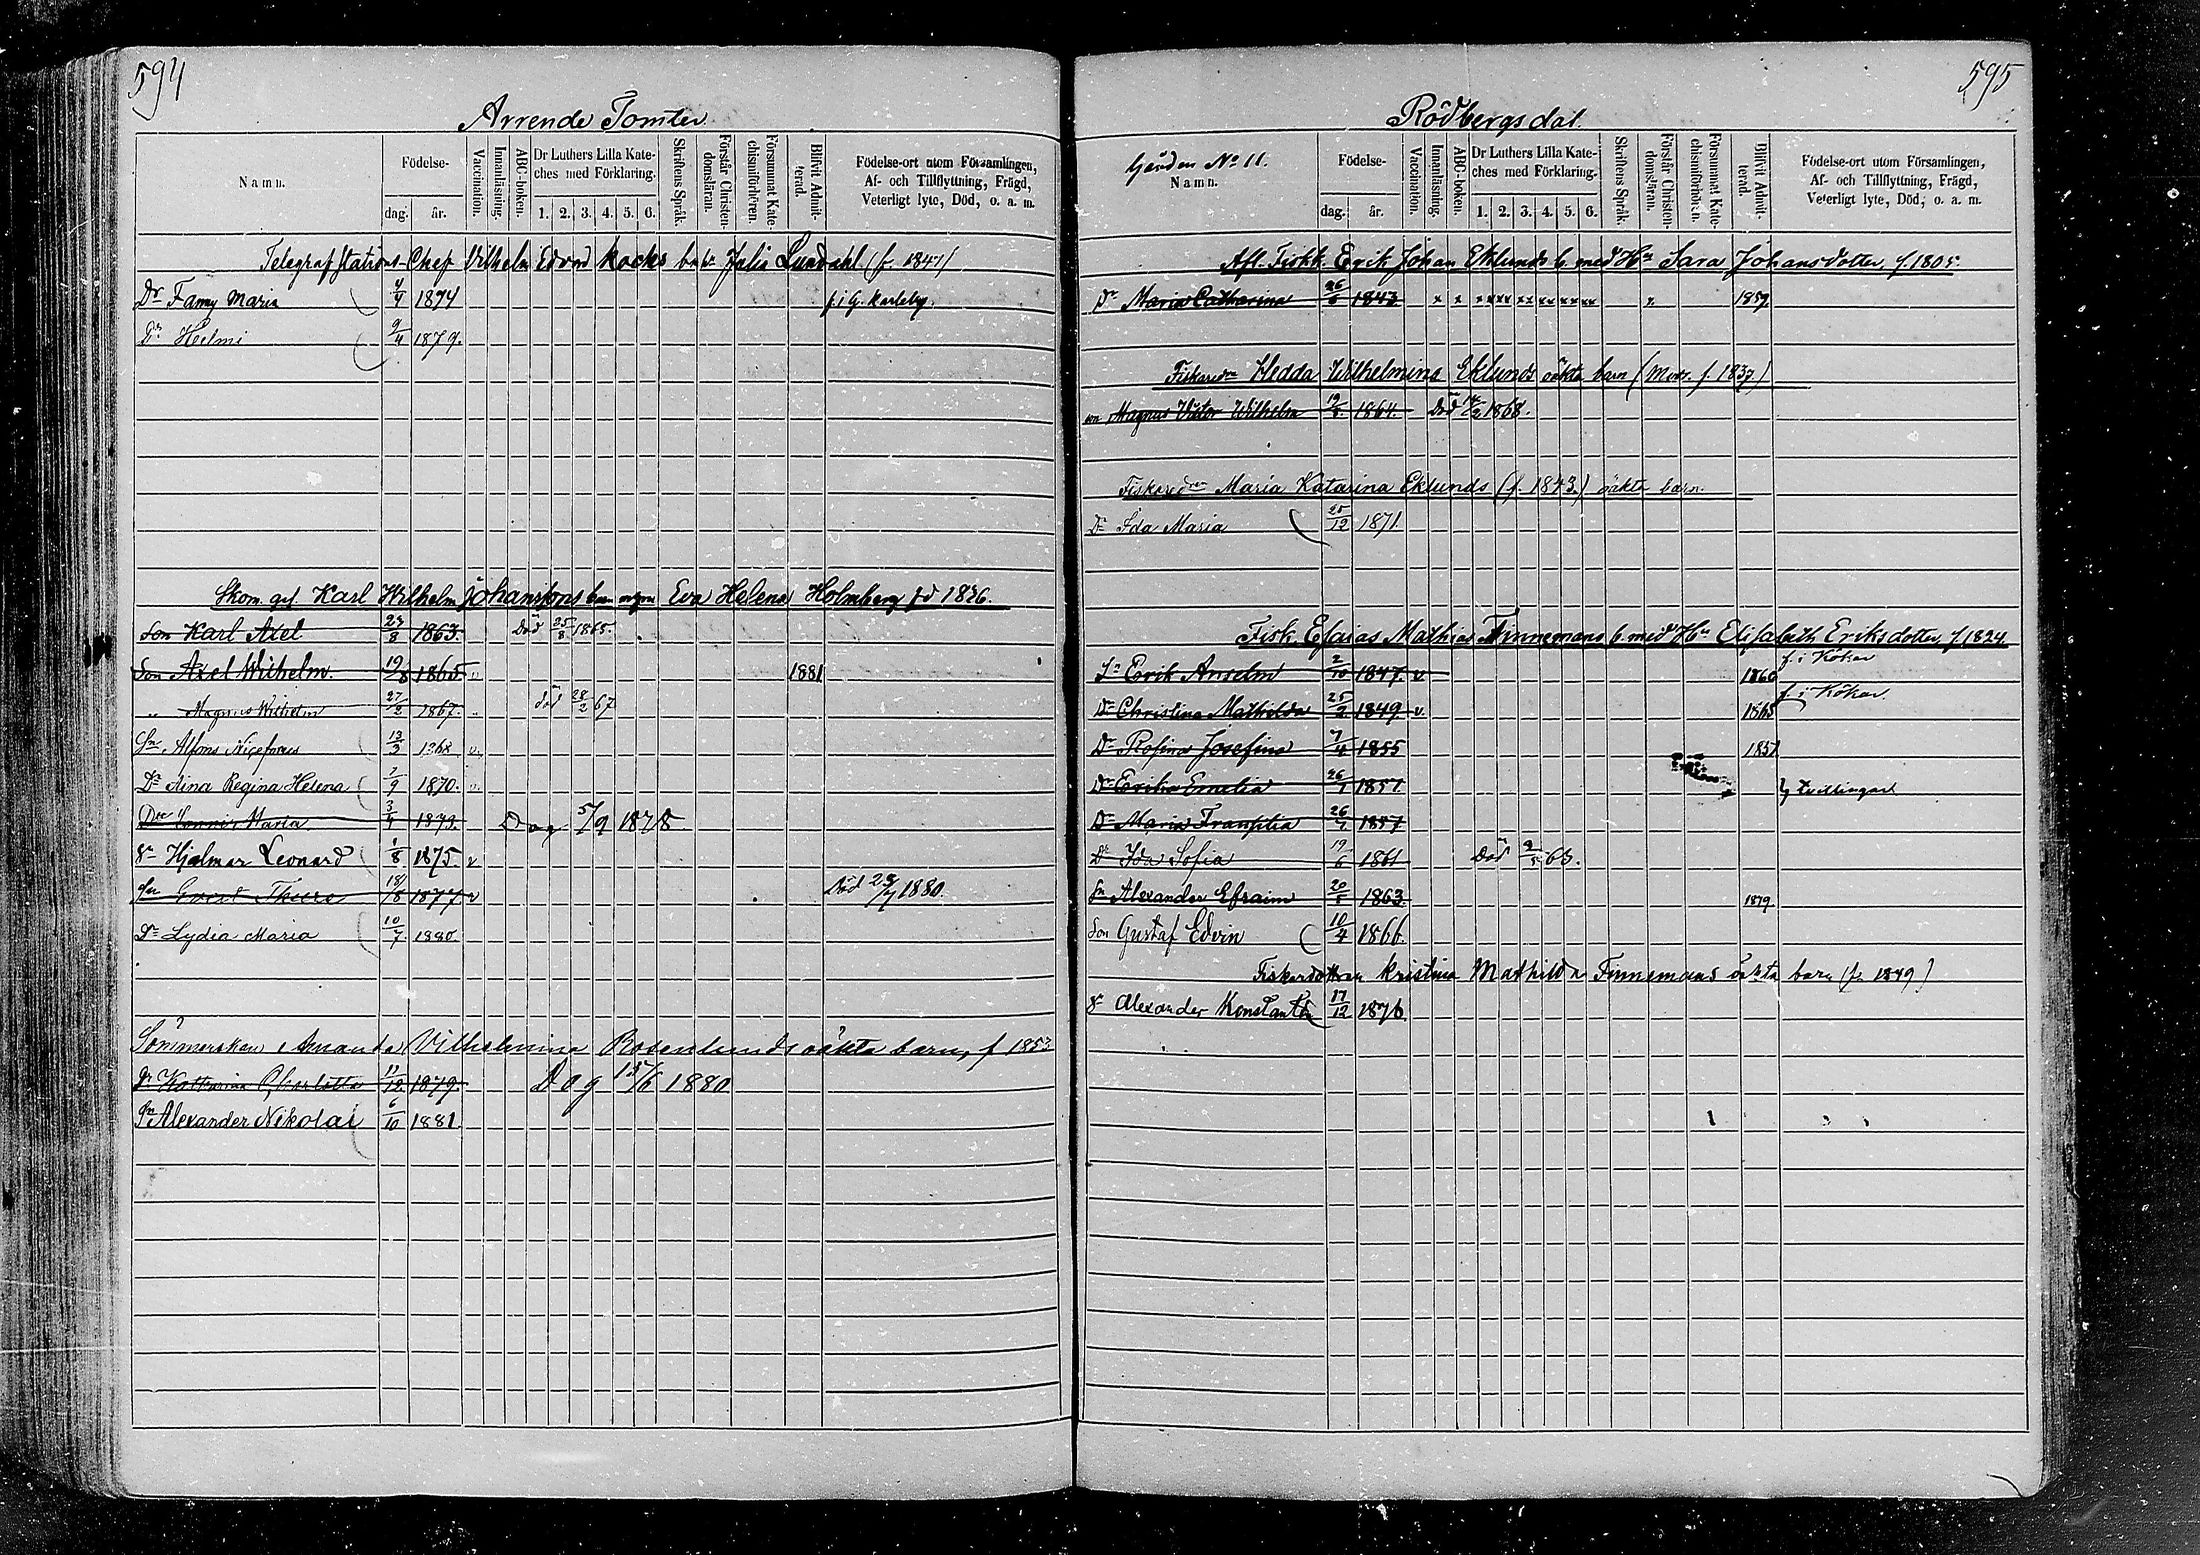 594
Arrende Tomter.
Namn.
Födelse-
dag.
år.
Vaccination.
Innanläsning.
ABC-boken.
Dr Luthers Lilla Kate-
ches med Förklaring.
1. 2. 3. 4. 5. 6.
Skriftens Språk.
Förstår Christen-
domsläran.
Försummat Kate-
chismiförhören.
Blifvit Admit-
terad.
Födelse-ort utom Församlingen,
Af- och Tillflyttning, Frägd,
Veterligt lyte, Död, o. a. m.
Telegrafstations Chef Vilhelm Edvard Kocks Julia Lundahl (f. 1841)
Dr Fanny Maria 4/4 1874 f. i G. Karleby.
Dr Helmi 9/4 1879.
Skom. ges. Karl Wilhelm Johanssons Eva Helena Holmberg fd 1836.
Son Karl Axel 23/8 1863. Död 25/8 1865.
Son Axel Wilhelm. 19/8 1865 v 1881
" Magnus Wilhelm 27/2 1867. död 28/2 67
Sn Alfons Niceforus 13/3 1868 v.
Dr Aina Regina Helena 7/9 1870. v.
Dtr Maria 1873. Dog 5/9 1878
Sn Hjalmar Leonard 1/8 1875 v
Sn Thure 18/8 1877 v Död 1880.
Dr Lydia Maria 10/7 1880.
Sömmerskan Amanda Vilhelmina Rosenlunds oäkta barn, f 1853
Dr Katharina Charlotta 11/12 1879. Dog 15/6 1880
Sn Alexander Nikolai 6/10 1881.
595
Rödbergsdal.
Gården No 11.
Namn.
Födelse-
dag.
år.
Vaccination.
Innanläsning.
ABC-boken.
Dr Luthers Lilla Kate-
ches med Förklaring.
1. 2. 3. 4. 5. 6.
Skriftens Språk.
Förstår Christen-
domsläran.
Försummat Kate-
chismiförhören.
Blifvit Admit-
terad.
Födelse-ort utom Församlingen,
Af- och Tillflyttning, Frägd,
Veterligt lyte, Död, o. a. m.
Afl. Fisk. Erik Johan Eklunds b. med Hu Sara Johansdotter, f. 1805.
Dr Maria Catharina 26/6 1843 x x xx xx xx xx xx xx x 1859.
Fiskaredn Hedda Wilhelmina Eklunds oäkta barn (Modr. f. 1837)
son Magnus Viktor Wilhelm 19/8 1864. Död 14/2 1868.
Fiskaredn Maria Katarina Eklunds (f. 1843.) oäkta barn.
Dr Ida Maria 25/12 1871
Fisk. Esaias Mathias Finnemans b. med Hu Elisabeth Eriksdotter, f. 1824
Sn Erik Anselm 2/10 1847. v. 1866 f. i Kökar
Dr Christina Mathilda 25/2 1849 v. 1865 f. i Kökar
Dr Rosina Josefina 7/4 1855
Dr Erika Emelia 26/7 1857 } Tvillingar
Dr Maria 26/7 1857
Dr Ida Sofia 19/6 1861 Död 2/5 63.
Sn Alexander Efraim 20/5 1863. 1879.
Son Gustaf Edvin 10/4 1866.
Fiskaredottren Kristina Mathilda Finnemans oäkta barn (f. 1849)
Sn Alexander Konstantin 17/12 1876.